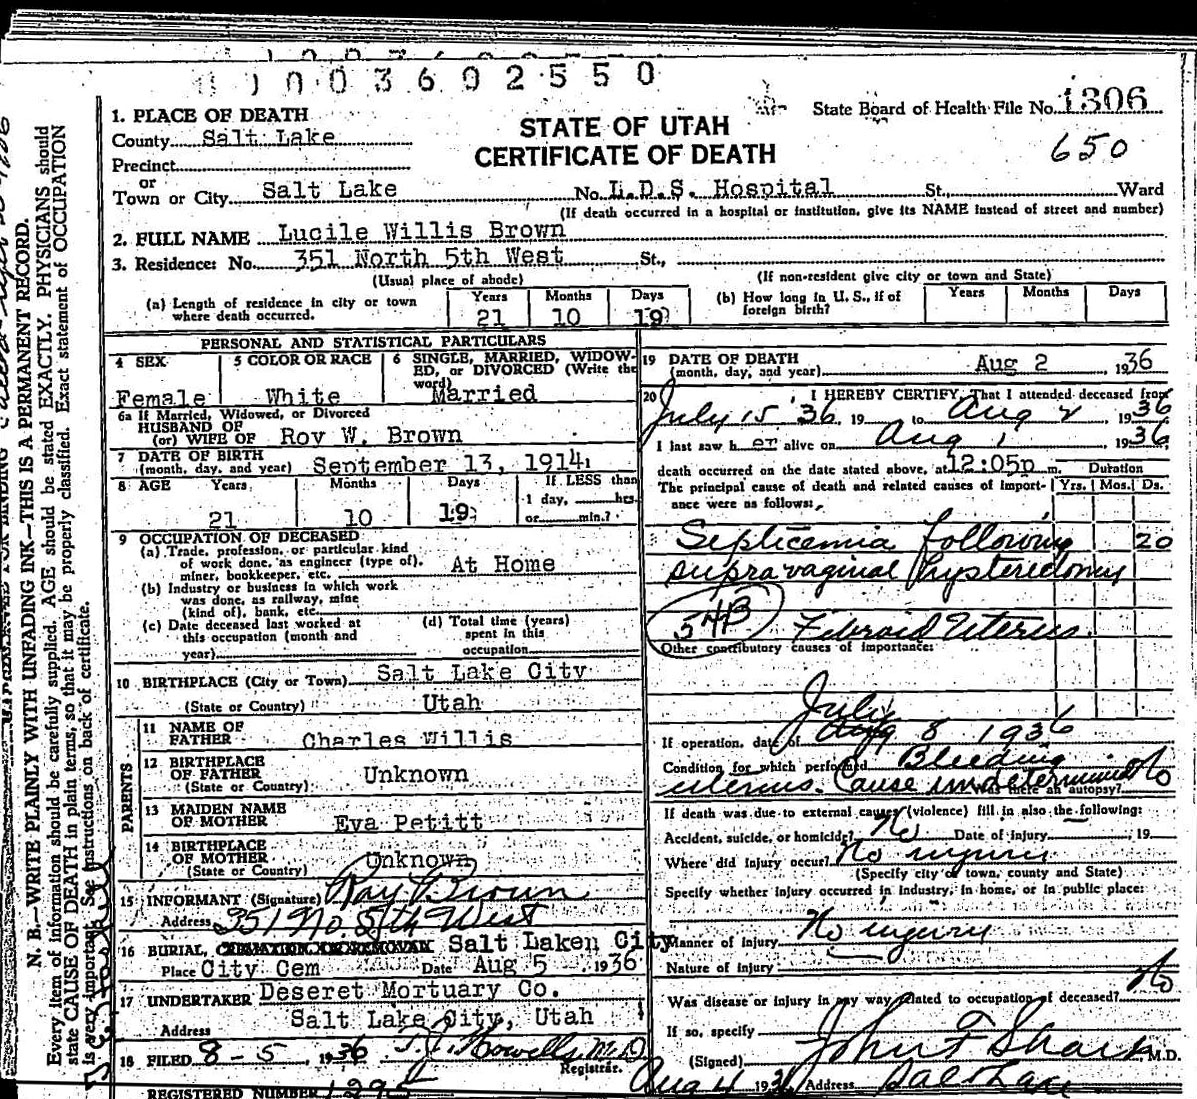 1 0 0 3 6 0 2 5 5 0
State Board of Health File No. 1306
650
STATE OF UTAH
CERTIFICATE OF DEATH
1. PLACE OF DEATH
County Salt Lake
Precinct
or
Town or City Salt Lake No. L.D.S. Hospital St. Ward
(If death occurred in a hospital or institution, give its NAME instead of street and number)
2. FULL NAME Lucile Willis Brown
3. Residence: No. 351 North 5th West St.,
(Usual place of abode) (If non-resident give city or town and State)
(a) Length of residence in city or town where death occurred. Years 21 Months 10 Days 19
(b) How long in U. S., if of foreign birth? Years Months Days
PERSONAL AND STATISTICAL PARTICULARS
4 SEX Female
5 COLOR OR RACE White
6 SINGLE, MARRIED, WIDOWED, or DIVORCED (Write the word) Married
6a If Married, Widowed, or Divorced
HUSBAND OF
(or) WIFE OF Roy W. Brown
7 DATE OF BIRTH
(month, day, and year) September 13, 1914
8 AGE Years 21 Months 10 Days 19 If LESS than 1 day, hrs. or min.?
9 OCCUPATION OF DECEASED
(a) Trade, profession, or particular kind
of work done, as engineer (type of),
miner, bookkeeper, etc. At Home
(b) Industry or business in which work
was done, as railway, mine
(kind of), bank, etc.
(c) Date deceased last worked at
this occupation (month and
year)
(d) Total time (years)
spent in this
occupation
10 BIRTHPLACE (City or Town) Salt Lake City
(State or Country) Utah
PARENTS
11 NAME OF
FATHER Charles Willis
12 BIRTHPLACE
OF FATHER Unknown
(State or Country)
13 MAIDEN NAME
OF MOTHER Eva Petitt
14 BIRTHPLACE
OF MOTHER Unknown
(State or Country)
15 INFORMANT (Signature) Ray Brown
Address 351 No. 5th West
16 BURIAL, CREMATION, OR REMOVAL Salt Laken City
Place City Cem Date Aug 5 1936
17 UNDERTAKER Deseret Mortuary Co.
Address Salt Lake City, Utah
18 FILED 8-5, 1936 T. J. Howells, M.D.
Registrar.
REGISTERED NUMBER
19 DATE OF DEATH
(month, day, and year) Aug 2, 1936
20 I HEREBY CERTIFY, That I attended deceased from
July 15 36, 19 to Aug 2 1936
I last saw her alive on Aug 1 1936,
death occurred on the date stated above, at 12:05p m. Duration
The principal cause of death and related causes of importance were as follows: Yrs. Mos. Ds.
Septicemia following 20
supravaginal hysterectomy
54B Fibroid Uterus
Other contributory causes of importance:
July
If operation, date of Aug 8 1936
Condition for which performed Bleeding
uterus. Cause undetermined Was there an autopsy? No
If death was due to external causes (violence) fill in also the following:
Accident, suicide, or homicide? No Date of injury, 19
Where did injury occur? No injury
(Specify city or town, county and State)
Specify whether injury occurred in industry, in home, or in public place:
No injury
Manner of injury
Nature of injury
Was disease or injury in any way related to occupation of deceased? No
If so, specify
(Signed) John F Sharp M.D.
Aug 4 1936 Address Salt Lake
N. B.—WRITE PLAINLY WITH UNFADING INK—THIS IS A PERMANENT RECORD.
Every item of information should be carefully supplied. AGE should be stated EXACTLY. PHYSICIANS should
state CAUSE OF DEATH in plain terms, so that it may be properly classified. Exact statement of OCCUPATION
is very important. See instructions on back of certificate.